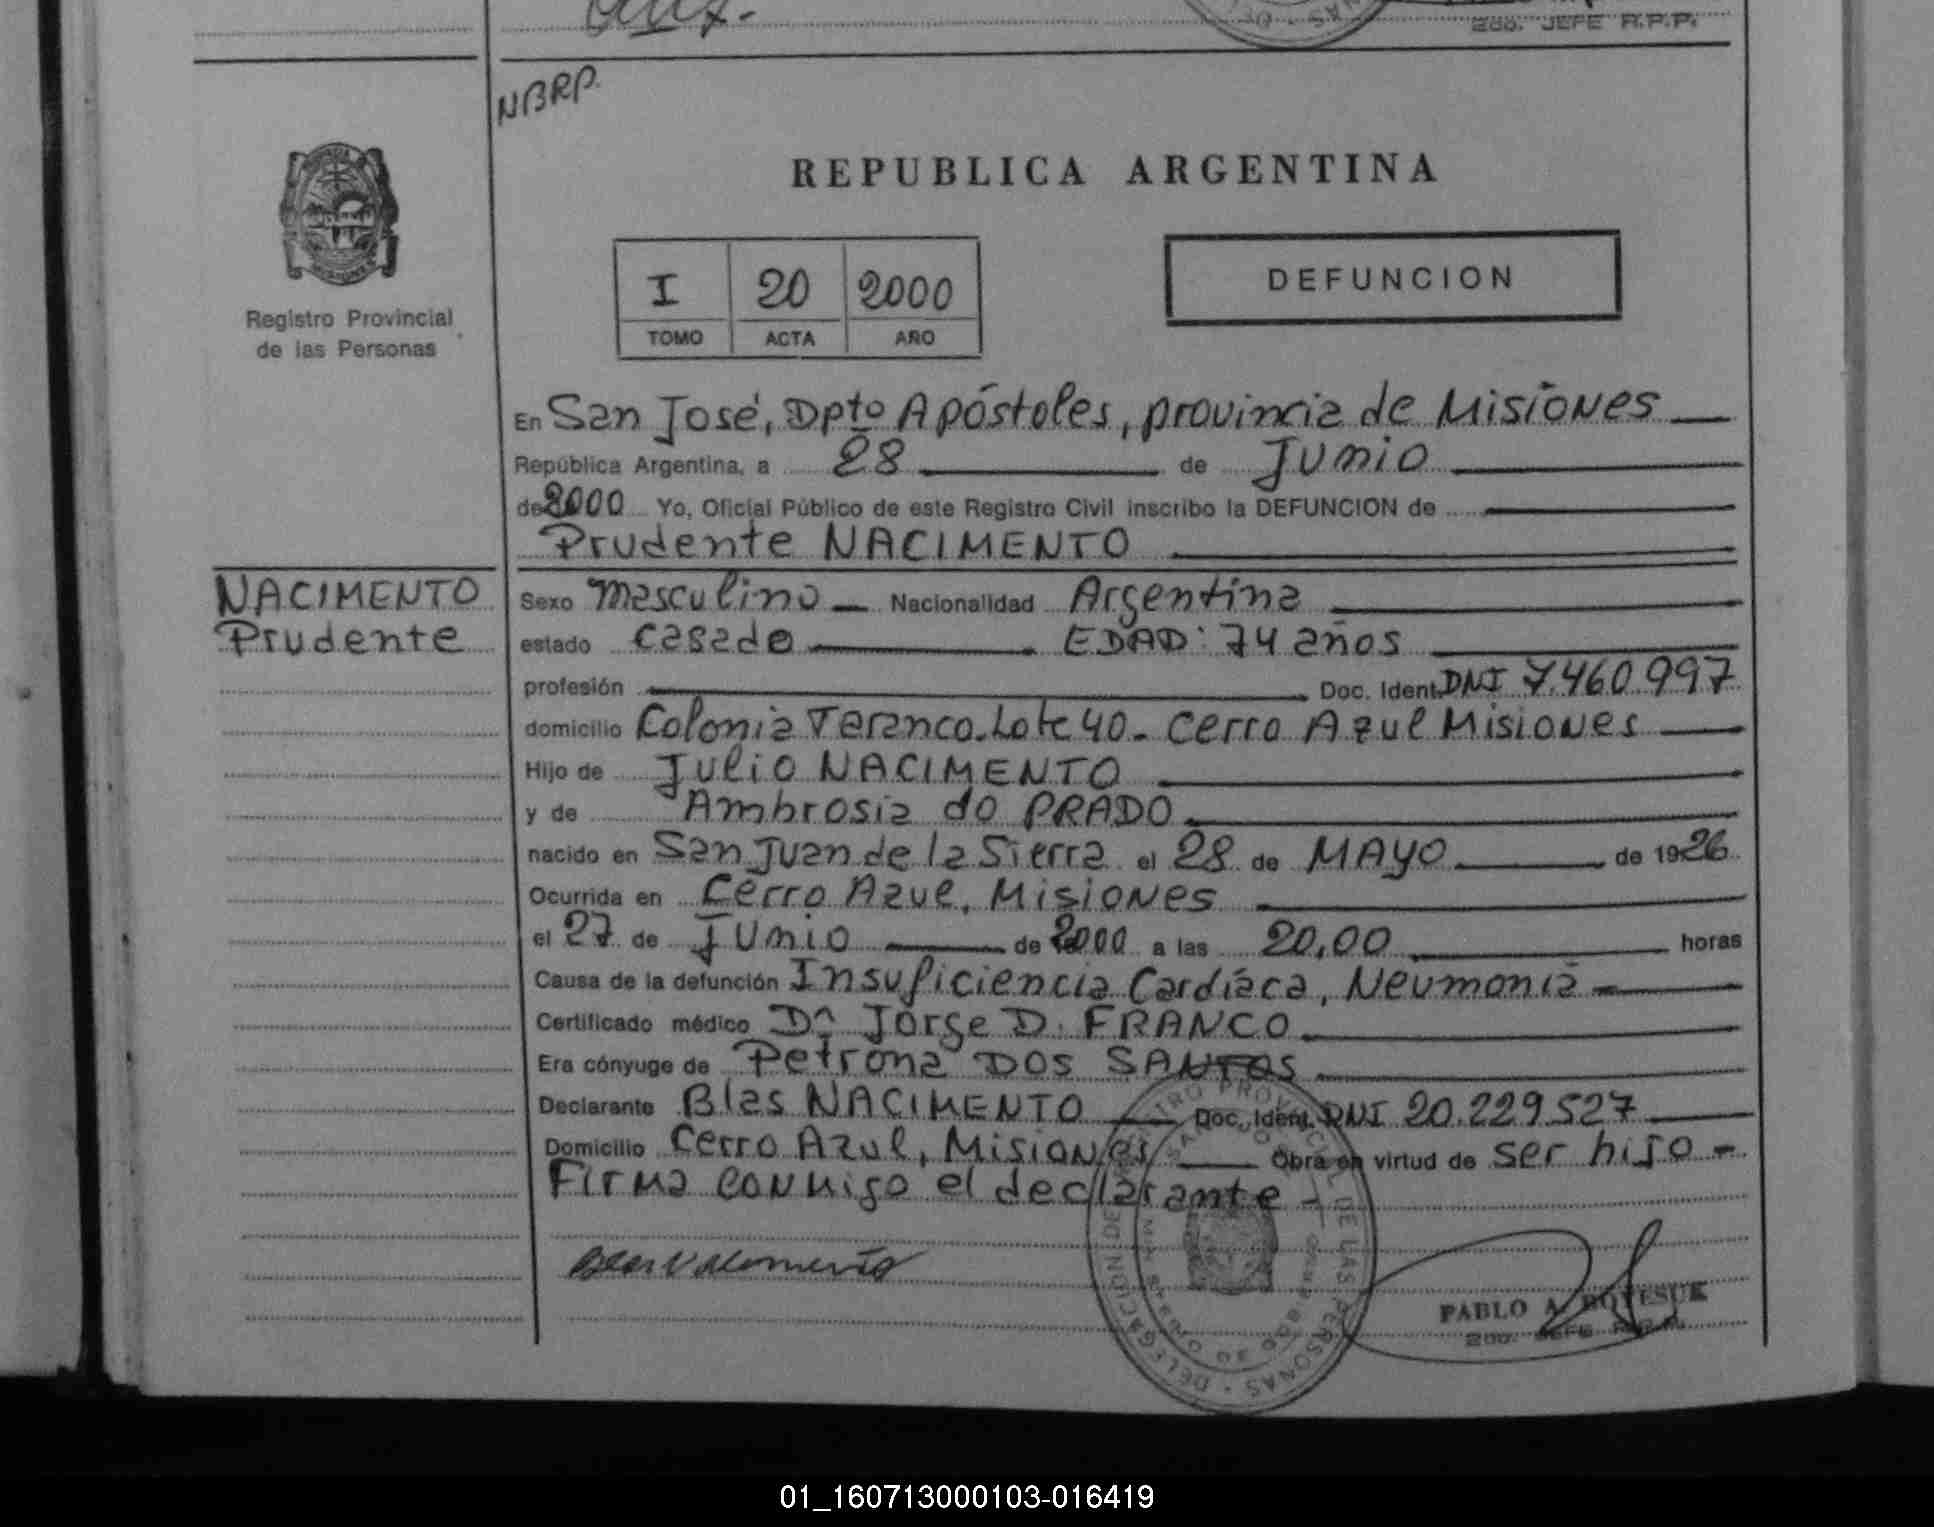 2do. JEFE R.P.P.
NBRP.
REPUBLICA ARGENTINA
I 20 2000
TOMO ACTA AÑO
DEFUNCION
Registro Provincial
de las Personas
En San José, Dpto Apóstoles, provincia de Misiones
República Argentina, a 28 de Junio
de 2000 Yo, Oficial Público de este Registro Civil inscribo la DEFUNCION de
Prudente NACIMENTO
NACIMENTO
Prudente
Sexo Masculino Nacionalidad Argentina
estado Casado EDAD: 74 años
profesión Doc. Ident. DNI 7.460.997
domicilio Colonia Teranco. Lote 40 - Cerro Azul Misiones
Hijo de Julio NACIMENTO
y de Ambrosia do PRADO
nacido en San Juan de la Sierra el 28 de MAYO de 1926
Ocurrida en Cerro Azul, Misiones
el 27 de Junio de 2000 a las 20,00 horas
Causa de la defunción Insuficiencia Cardíaca, Neumonia
Certificado médico Dr Jorge D. FRANCO
Era cónyuge de Petrona DOS SANTOS
Declarante Blas NACIMENTO Doc. Ident. DNI 20.229.527
Domicilio Cerro Azul, Misiones Obra en virtud de ser hijo -
Firma conmigo el declarante -
REGISTRO PROVINCIAL DE LAS PERSONAS - DELEGACION DE
PABLO A. BOYESUK
2do. JEFE R.P.P.
01_160713000103-016419